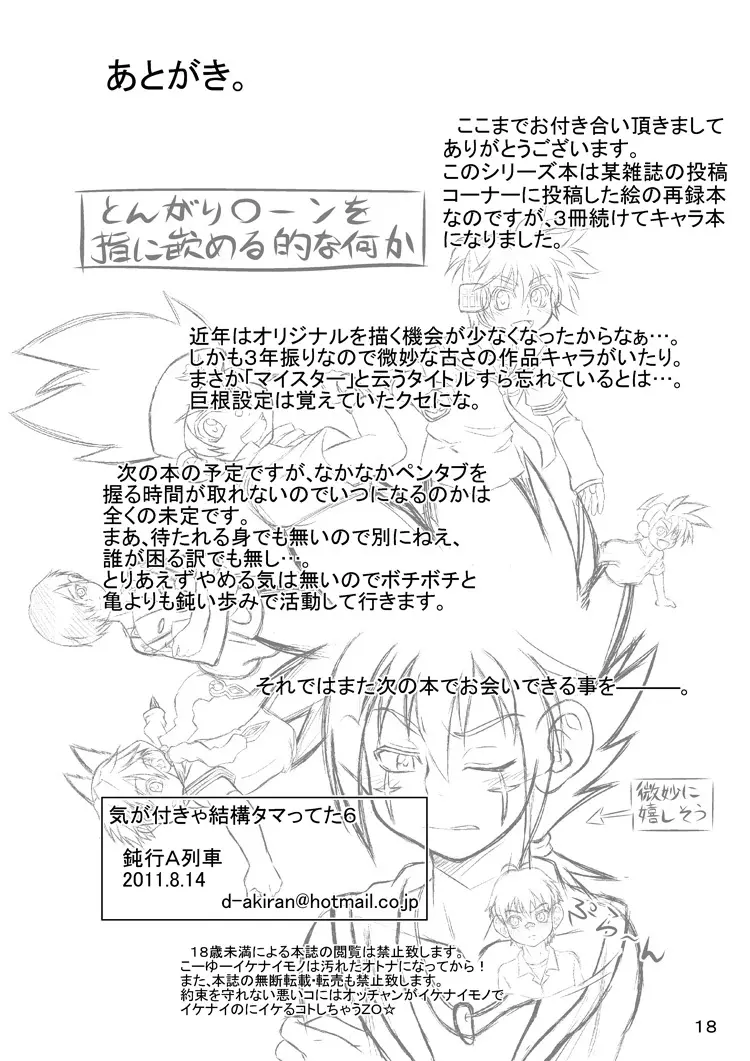 あとがき。
ここまでお付き合い頂きまして
ありがとうございます。
このシリーズ本は某雑誌の投稿
コーナーに投稿した絵の再録本
なのですが、3冊続けてキャラ本
になりました。
とんがり〇ーンを
指に嵌める的な何か
近年はオリジナルを描く機会が少なくなったからなぁ…。
しかも3年振りなので微妙な古さの作品キャラがいたり。
まさか「マイスター」と云うタイトルすら忘れているとは…。
巨根設定は覚えていたクセにな。
次の本の予定ですが、なかなかペンタブを
握る時間が取れないのでいつになるのかは
全くの未定です。
まあ、待たれる身でも無いので別にねえ、
誰が困る訳でも無し…。
とりあえずやめる気は無いのでボチボチと
亀よりも鈍い歩みで活動して行きます。
それではまた次の本でお会いできる事を―――。
微妙に
嬉しそう
気が付きゃ結構タマってた6
鈍行A列車
2011.8.14
d-akiran@hotmail.co.jp
ぷら~ん
18歳未満による本誌の閲覧は禁止致します。
こーゆーイケナイモノは汚れたオトナになってから!
また、本誌の無断転載・転売も禁止致します。
約束を守れない悪いコにはオッチャンがイケナイモノで
イケナイのにイケるコトしちゃうZO☆
18